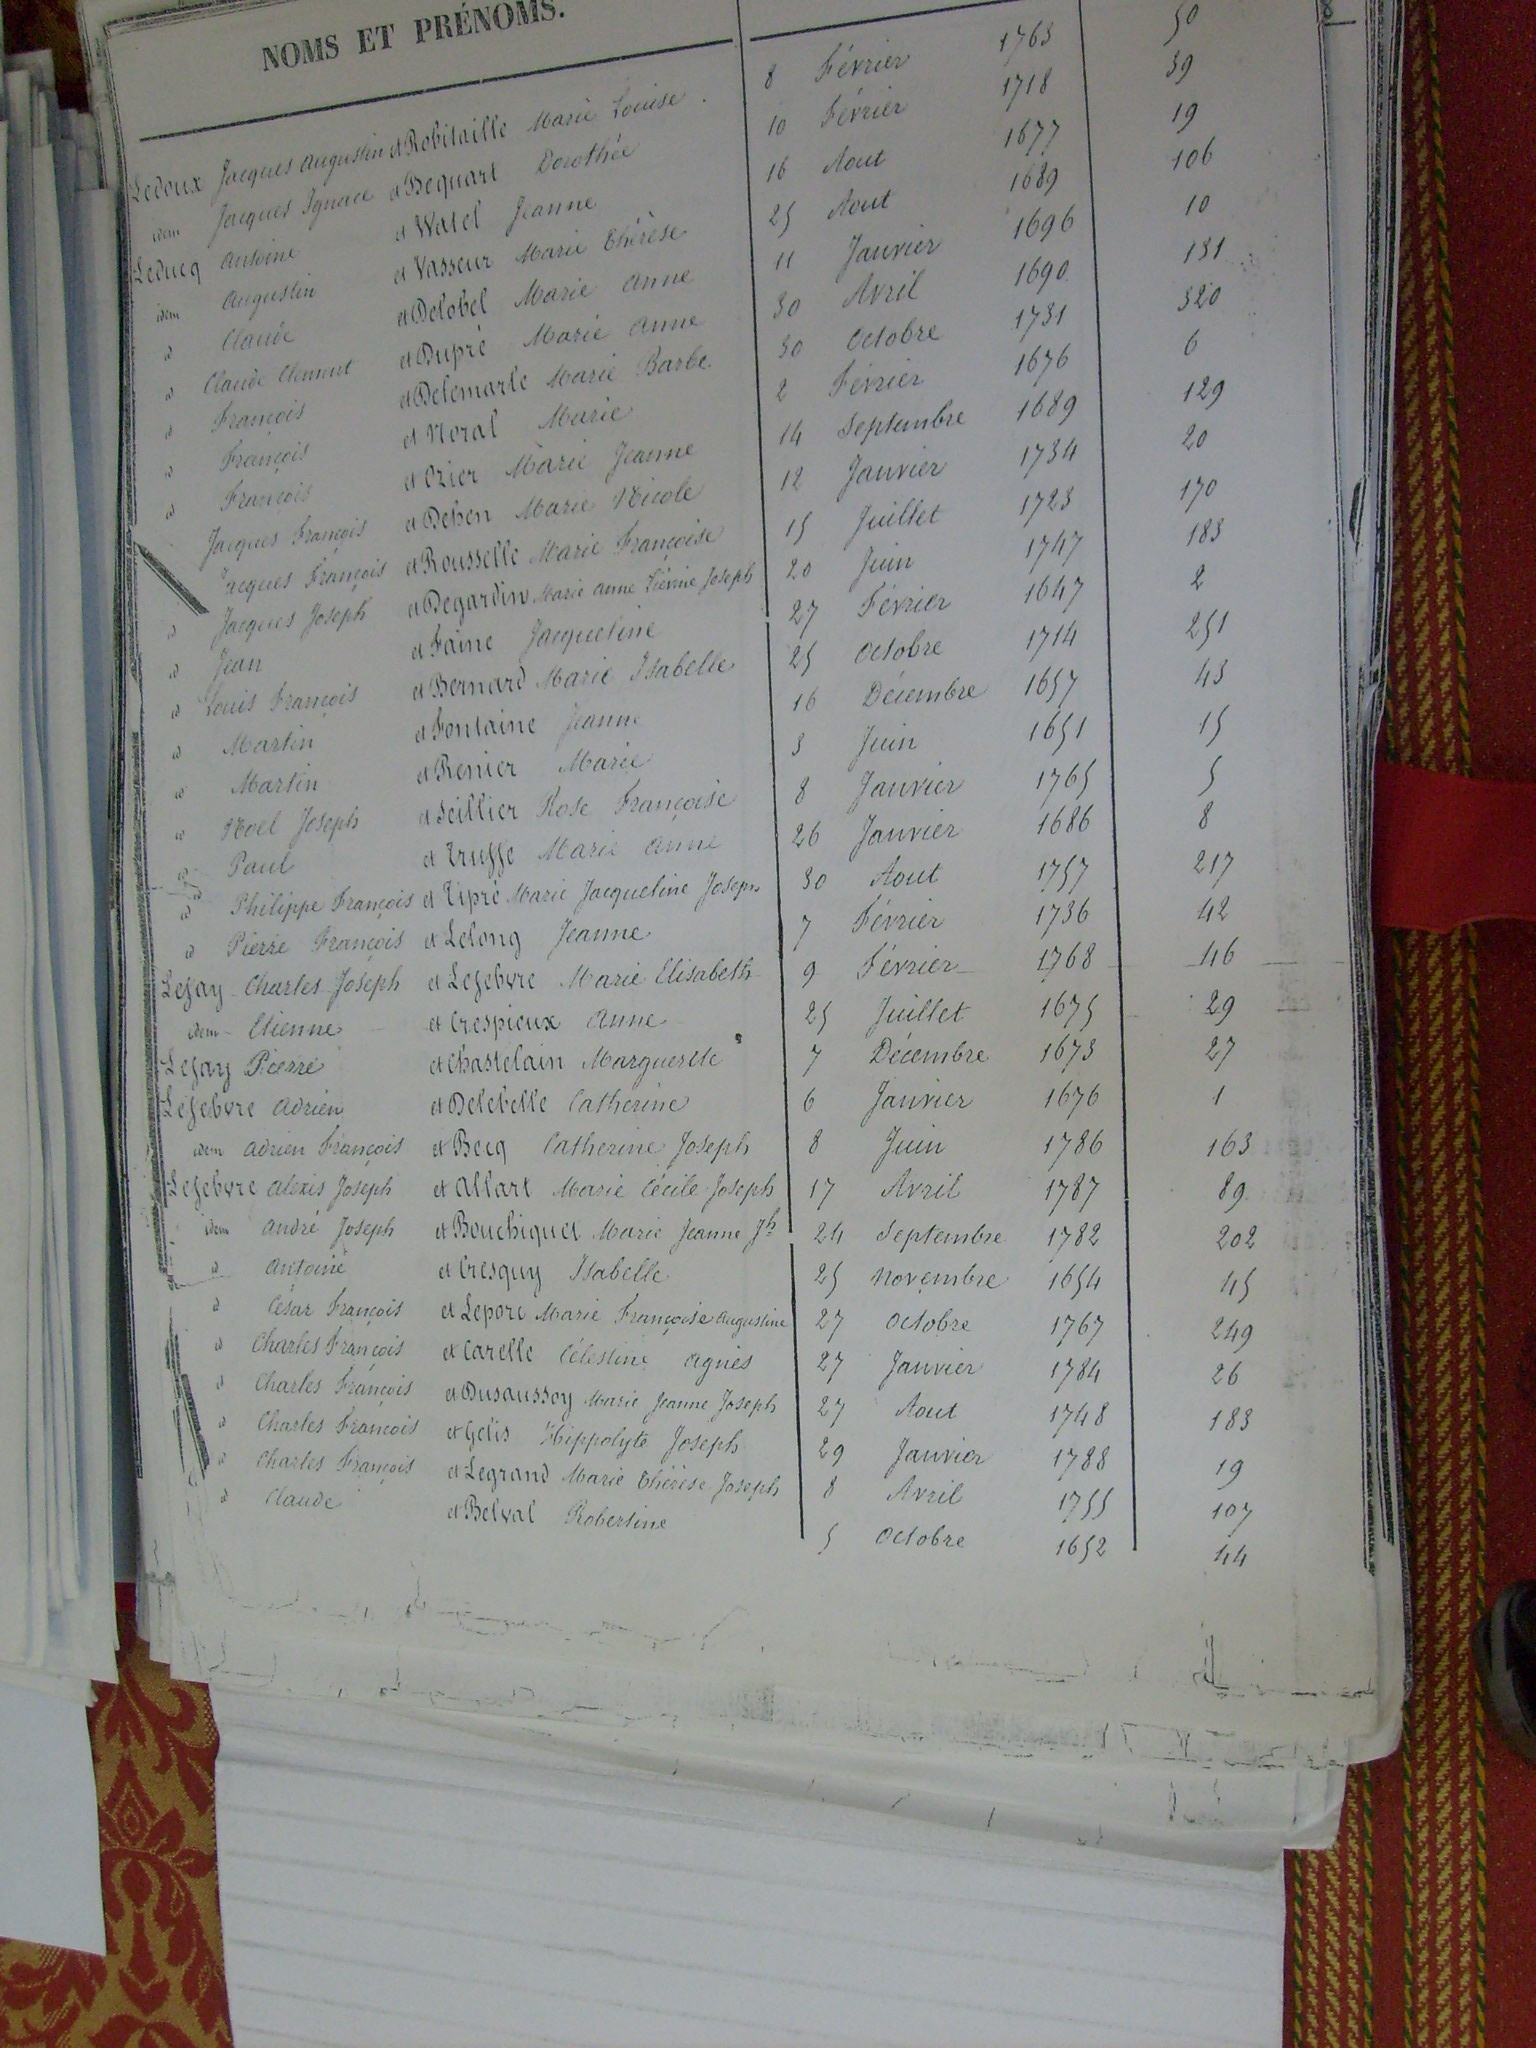 NOMS ET PRÉNOMS.
Ledoux Jacques Augustin et Robitaille Marie Louise. 8 Février 1763 50
idem Jacques Ignace et Bequart Dorothée 10 Février 1718 39
Leducq Antoine et Watel Jeanne 16 Aout 1677 19
idem Augustin et Vasseur Marie Thérèse 25 Aout 1689 106
d Claude et Delobel Marie Anne 11 Janvier 1696 10
d Claude Clement et Dupré Marie Anne 30 Avril 1690 131
d François et Delemarle Marie Barbe 30 Octobre 1731 320
d François et Noral Marie 2 Février 1676 6
d François et Crier Marie Jeanne 14 Septembre 1689 129
Jacques François et Dehen Marie Nicole 12 Janvier 1734 20
Jacques François et Rousselle Marie Françoise 15 Juillet 1723 170
d Jacques Joseph et Degardin Marie Anne Liévine Joseph 20 Juin 1747 183
d Jean et Faine Jacqueline 27 Février 1647 2
d Louis François et Bernard Marie Isabelle 25 Octobre 1714 251
d Martin et Fontaine Jeanne 16 Décembre 1657 43
d Martin et Renier Marie 3 Juin 1651 15
d Noel Joseph et Seillier Rose Françoise 8 Janvier 1765 5
d Paul et Truffe Marie Anne 26 Janvier 1686 8
d Philippe François et Tipré Marie Jacqueline Joseph 30 Aout 1757 217
d Pierre François et Lelong Jeanne 7 Février 1736 42
Lefay Charles Joseph et Lefebvre Marie Elisabeth 9 Février 1768 46
idem Etienne et Crespieux Anne 25 Juillet 1675 29
Lefay Pierre et Chastelain Marguerite 7 Décembre 1673 27
Lefebvre Adrien et Delebelle Catherine 6 Janvier 1676 1
idem Adrien François et Becq Catherine Joseph 8 Juin 1786 163
Lefebvre Alexis Joseph et Allart Marie Cécile Joseph 17 Avril 1787 89
idem André Joseph et Bouchiquet Marie Jeanne Jh 24 Septembre 1782 202
d Antoine et Cresquy Isabelle 25 Novembre 1654 45
d César François et Lepore Marie Françoise Augustine 27 Octobre 1767 249
d Charles François et Carelle Célestine Agnès 27 Janvier 1784 26
d Charles François et Dusaussoy Marie Jeanne Joseph 27 Aout 1748 183
d Charles François et Gelis Hippolyte Joseph 29 Janvier 1788 19
d Charles François et Legrand Marie Thérèse Joseph 8 Avril 1755 107
d Claude et Belval Robertine 5 Octobre 1652 44